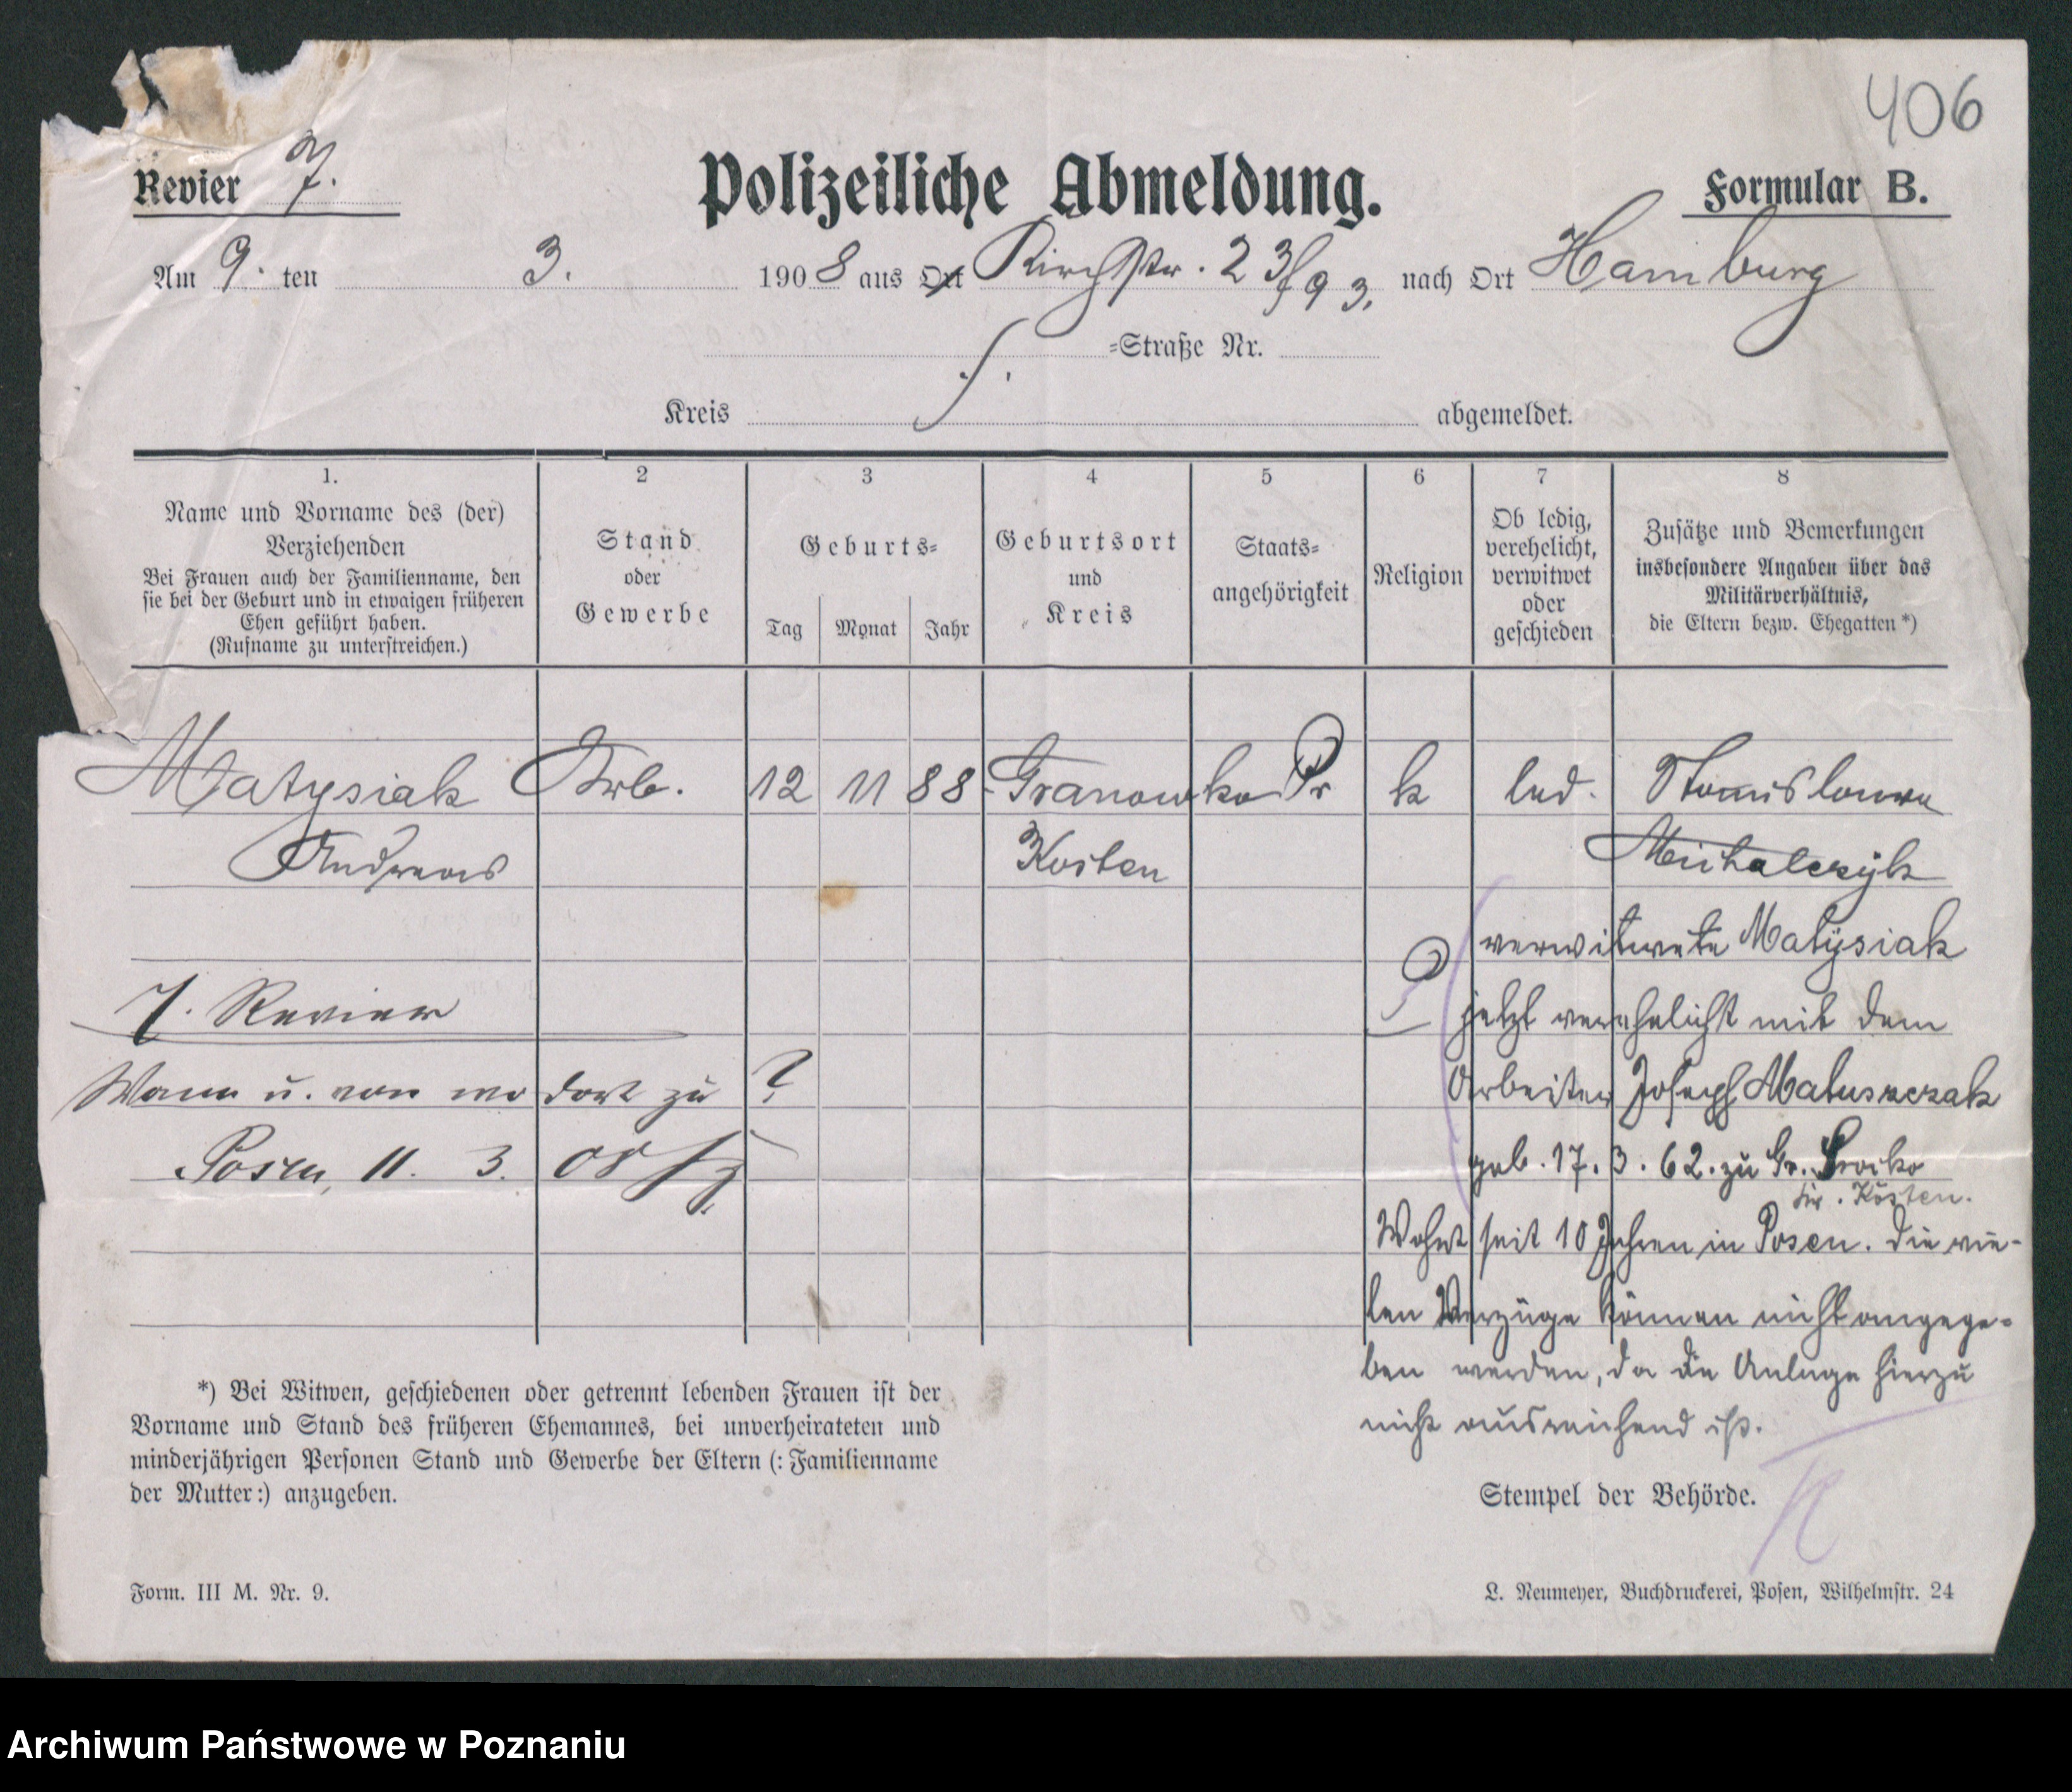 406
Revier 7.
Polizeiliche Abmeldung.
Formular B.
Am 9. ten 3. 1908 aus Ort Kirchstr. 23/93. nach Ort Hamburg
=Straße Nr.
Kreis abgemeldet.
1. 2 3 4 5 6 7 8
Name und Vorname des (der)
Verziehenden
Bei Frauen auch der Familienname, den
sie bei der Geburt und in etwaigen früheren
Ehen geführt haben.
(Rufname zu unterstreichen.)
Stand
oder
Gewerbe
Geburts=
Tag Monat Jahr
Geburtsort
und
Kreis
Staats=
angehörigkeit
Religion
Ob ledig,
verehelicht,
verwitwet
oder
geschieden
Zusätze und Bemerkungen
insbesondere Angaben über das
Militärverhältnis,
die Eltern bezw. Ehegatten *)
Matysiak Arb. 12 11 88 Granowko Pr k led. Stanislawa
Andreas Kosten Michalczyk
verwitwete Matysiak
7. Revier jetzt verehelicht mit dem
Wann u. von wo dort zu? Arbeiter Joseph Matuszczak
Posen, 11. 3. 08 geb. 17. 3. 62. zu Gr. Sroko
Kr. Kosten.
Wohnt seit 10 Jahren in Posen. Die vie-
len Verzüge können nicht angege-
ben werden, da die Anlage hierzu
nicht ausreichend ist.
*) Bei Witwen, geschiedenen oder getrennt lebenden Frauen ist der
Vorname und Stand des früheren Ehemannes, bei unverheirateten und
minderjährigen Personen Stand und Gewerbe der Eltern (: Familienname
der Mutter:) anzugeben.
Stempel der Behörde.
Form. III M. Nr. 9.
L. Neumeyer, Buchdruckerei, Posen, Wilhelmstr. 24
Archiwum Państwowe w Poznaniu